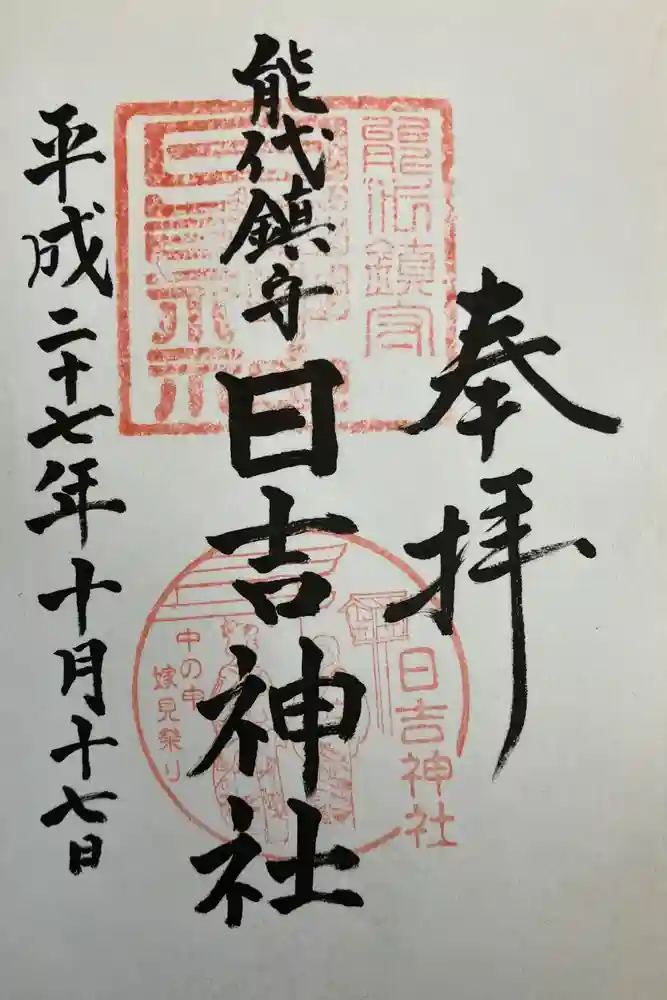 奉拝
能代鎮守
日吉神社
平成二十七年十月十七日
日吉神社
中の申
嫁見祭り